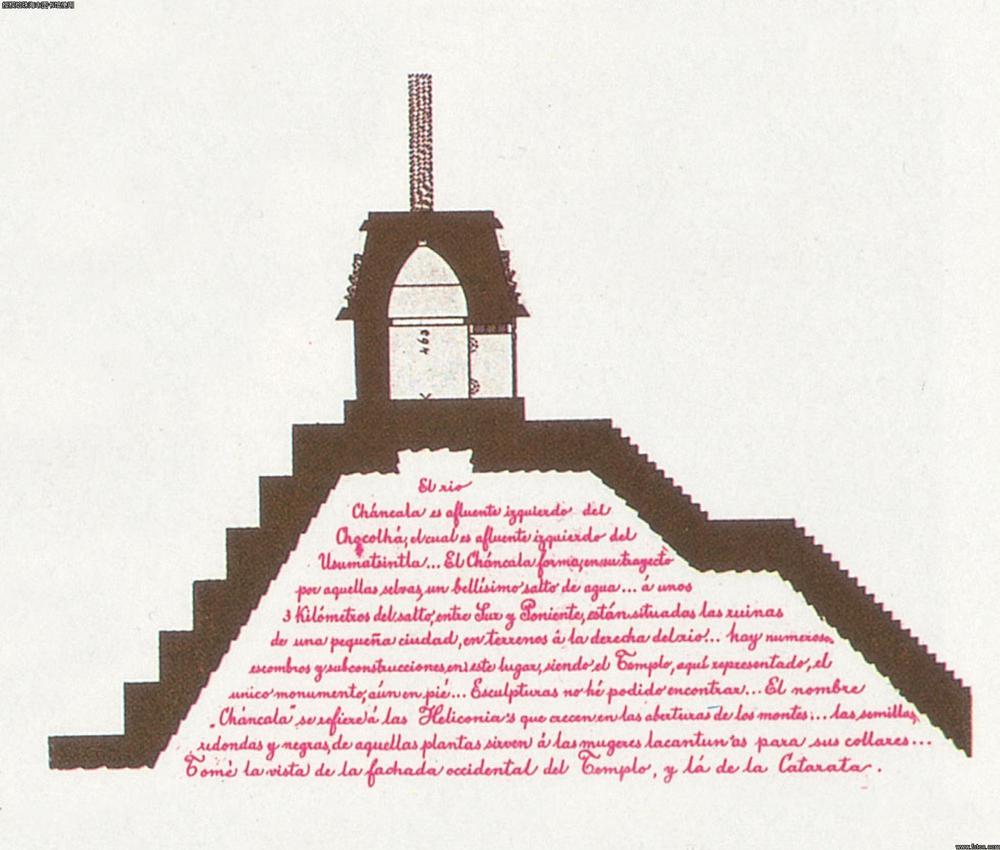 460
El rio
Cháncala es afluente izquierdo del
Chocolhá, el cual es afluente izquierdo del
Usumatsintla... El Cháncala forma, en su trayecto
por aquellas selvas, un bellísimo salto de agua... á unos
3 Kilómetros del salto, entre Sur y Poniente, están situadas las ruinas
de una pequeña ciudad, en terrenos á la derecha del rio... hay numerosos
escombros y subconstrucciones, en este lugar, siendo el Templo, aquí representado, el
unico monumento, aún en pié... Esculpturas no hé podido encontrar... El nombre
„Cháncala" se refiere á las Heliconia's que crecen en las aberturas de los montes;... las semillas,
redondas y negras, de aquellas plantas sirven á las mugeres lacantun'as para sus collares...
Tomé la vista de la fachada occidental del Templo, y lá de la Catarata.
www.fotoe.com